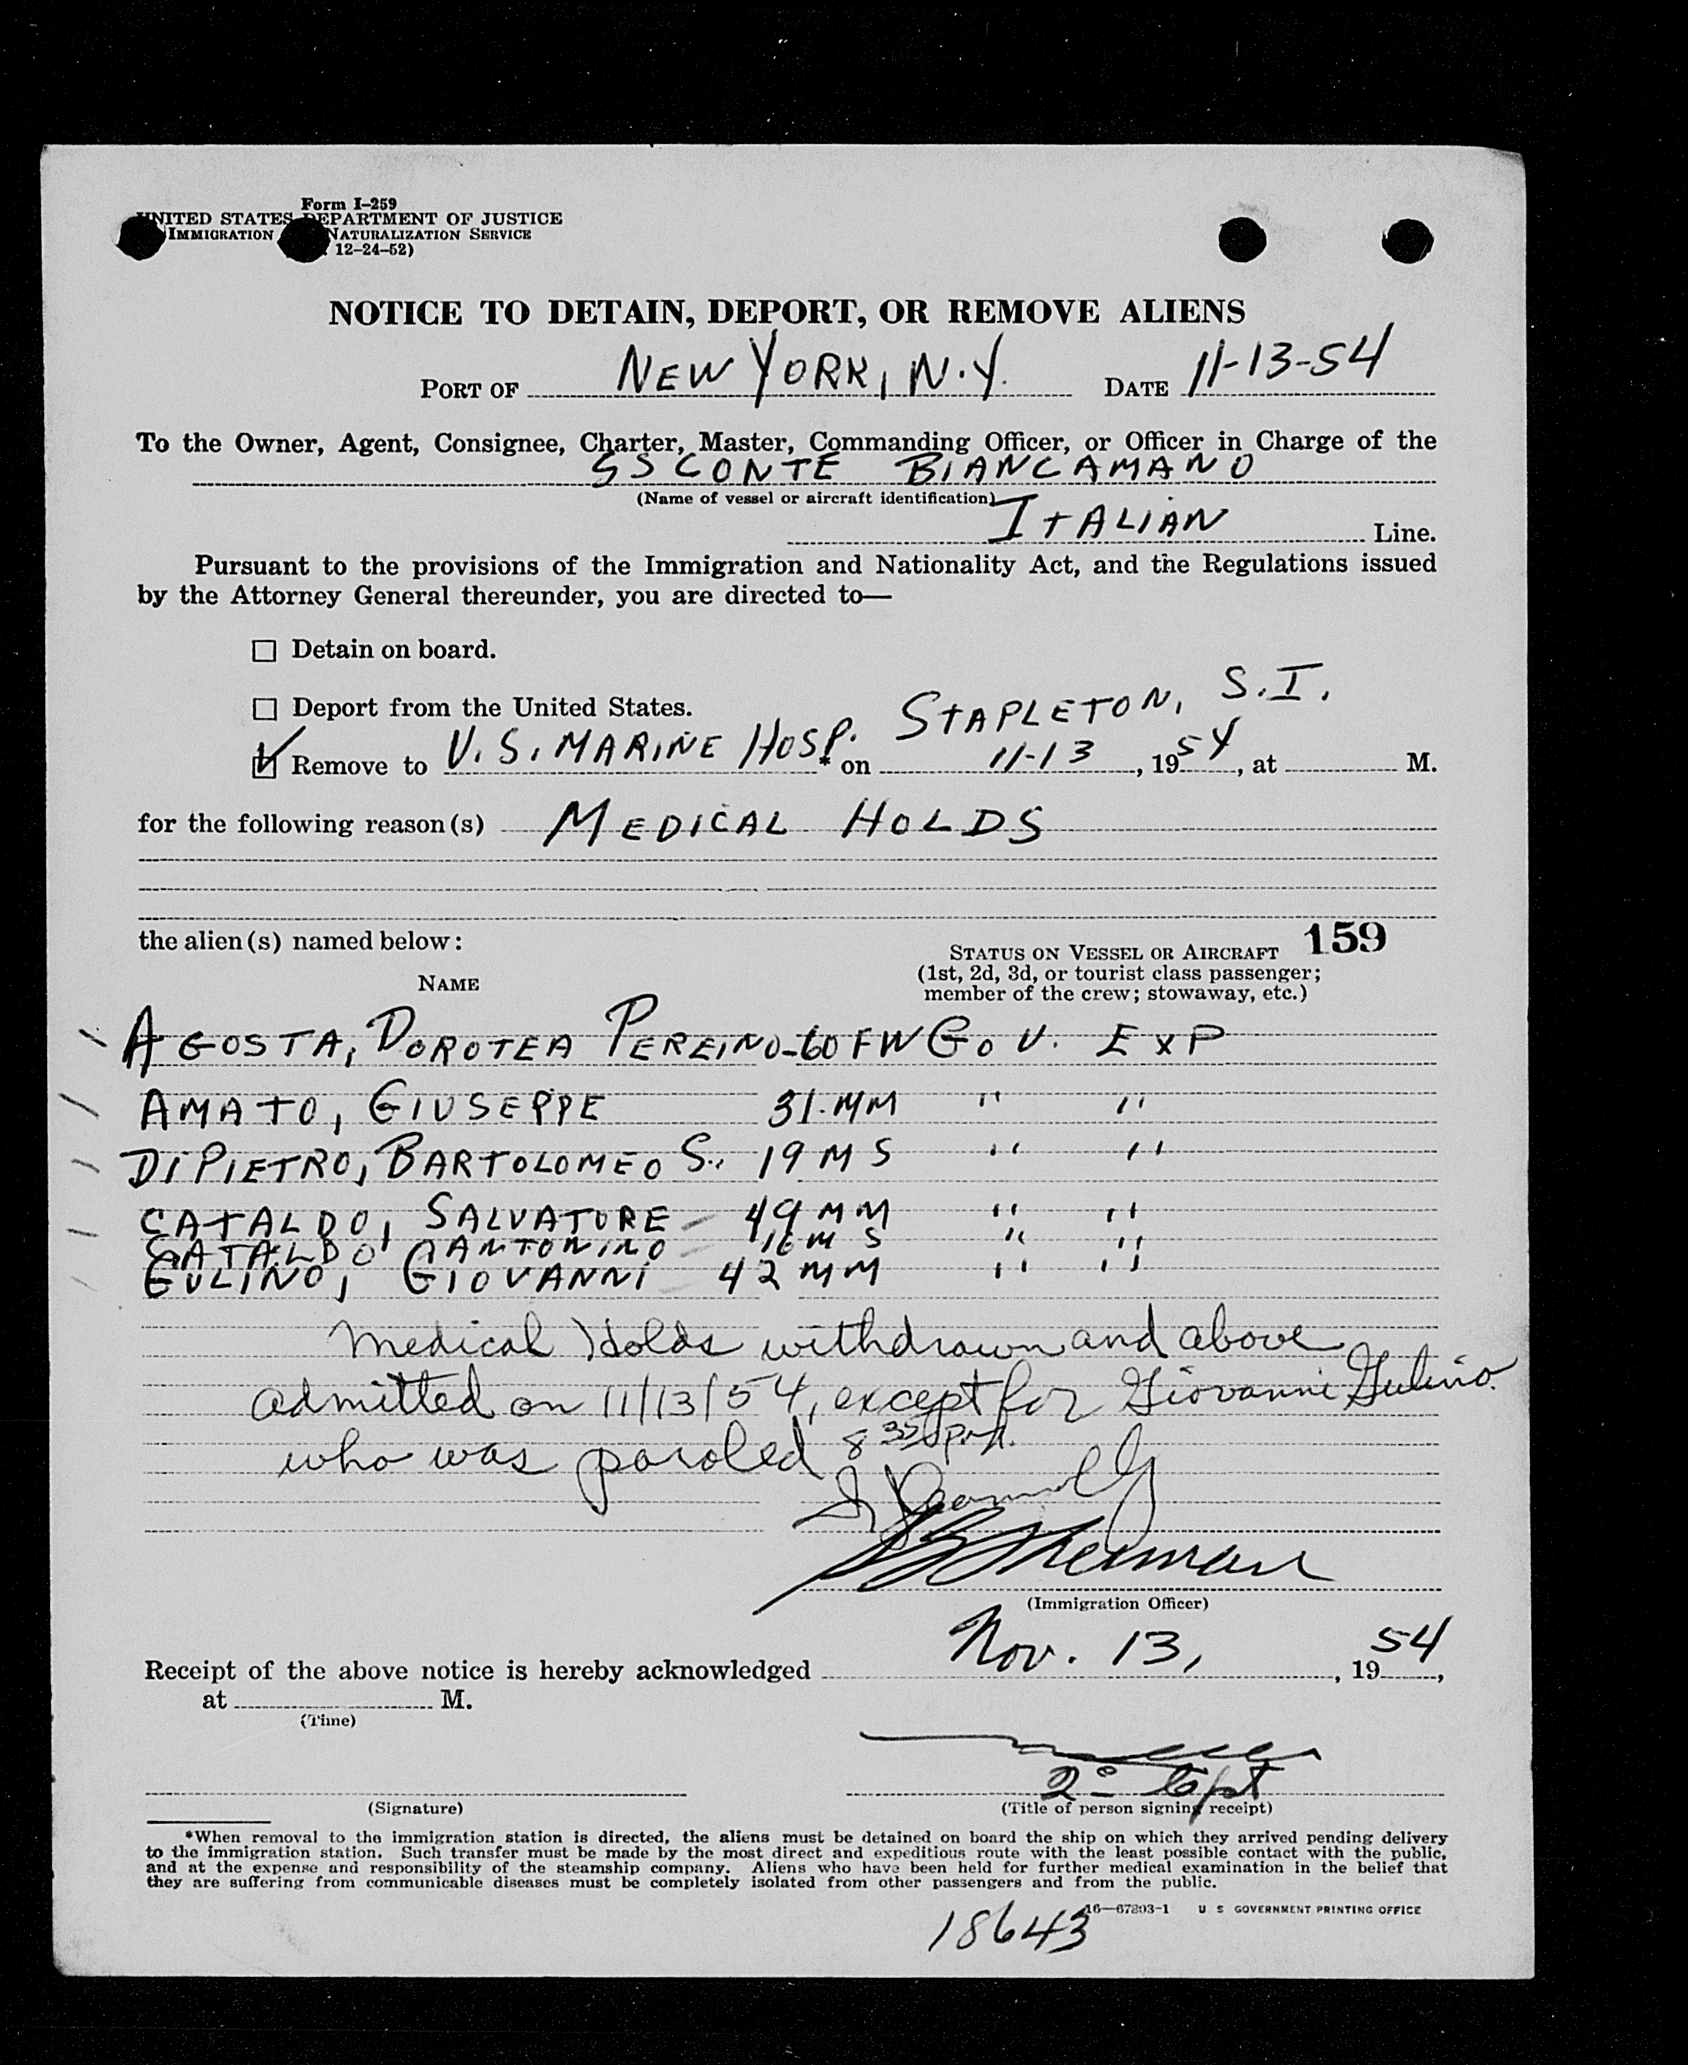 Form I-259
UNITED STATES DEPARTMENT OF JUSTICE
IMMIGRATION NATURALIZATION SERVICE
12-24-52)
NOTICE TO DETAIN, DEPORT, OR REMOVE ALIENS
PORT OF NEW YORK, N.Y. DATE 11-13-54
To the Owner, Agent, Consignee, Charter, Master, Commanding Officer, or Officer in Charge of the
SS CONTE BIANCAMANO
(Name of vessel or aircraft identification)
ITALIAN Line.
Pursuant to the provisions of the Immigration and Nationality Act, and the Regulations issued
by the Attorney General thereunder, you are directed to—
Detain on board.
Deport from the United States.
Remove to U.S. MARINE HOSP. STAPLETON, S.I. * on 11-13, 1954, at M.
for the following reason(s) MEDICAL HOLDS
the alien(s) named below:
159
STATUS ON VESSEL OR AIRCRAFT
(1st, 2d, 3d, or tourist class passenger;
member of the crew; stowaway, etc.)
NAME
AGOSTA, DOROTEA PEREINO-60 FW GOV. EXP
AMATO, GIUSEPPE 31 MM " "
DIPIETRO, BARTOLOMEO S. 19 M S " "
CATALDO, SALVATORE - 49 MM " "
CATALDO ANTONINO - 16 M S " "
GULINO, GIOVANNI 42 MM " "
Medical Holds withdrawn and above
admitted on 11/13/54, except for Giovanni Gulino.
who was paroled 8 35 P.M.
Sherman
(Immigration Officer)
Receipt of the above notice is hereby acknowledged Nov. 13, 1954,
at M.
(Time)
2º
(Signature) (Title of person signing receipt)
*When removal to the immigration station is directed, the aliens must be detained on board the ship on which they arrived pending delivery
to the immigration station. Such transfer must be made by the most direct and expeditious route with the least possible contact with the public,
and at the expense and responsibility of the steamship company. Aliens who have been held for further medical examination in the belief that
they are suffering from communicable diseases must be completely isolated from other passengers and from the public.
16—67203-1 U S GOVERNMENT PRINTING OFFICE
18643